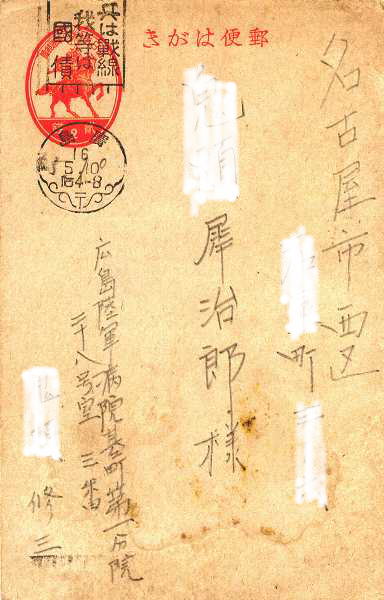 郵便はがき
兵は戦線
我等は
國債
廣島
16
5.10
后4-8
名古屋市西区
町
犀治郎様
広島陸軍病院基町第一分院
三十八号室 三番
修三